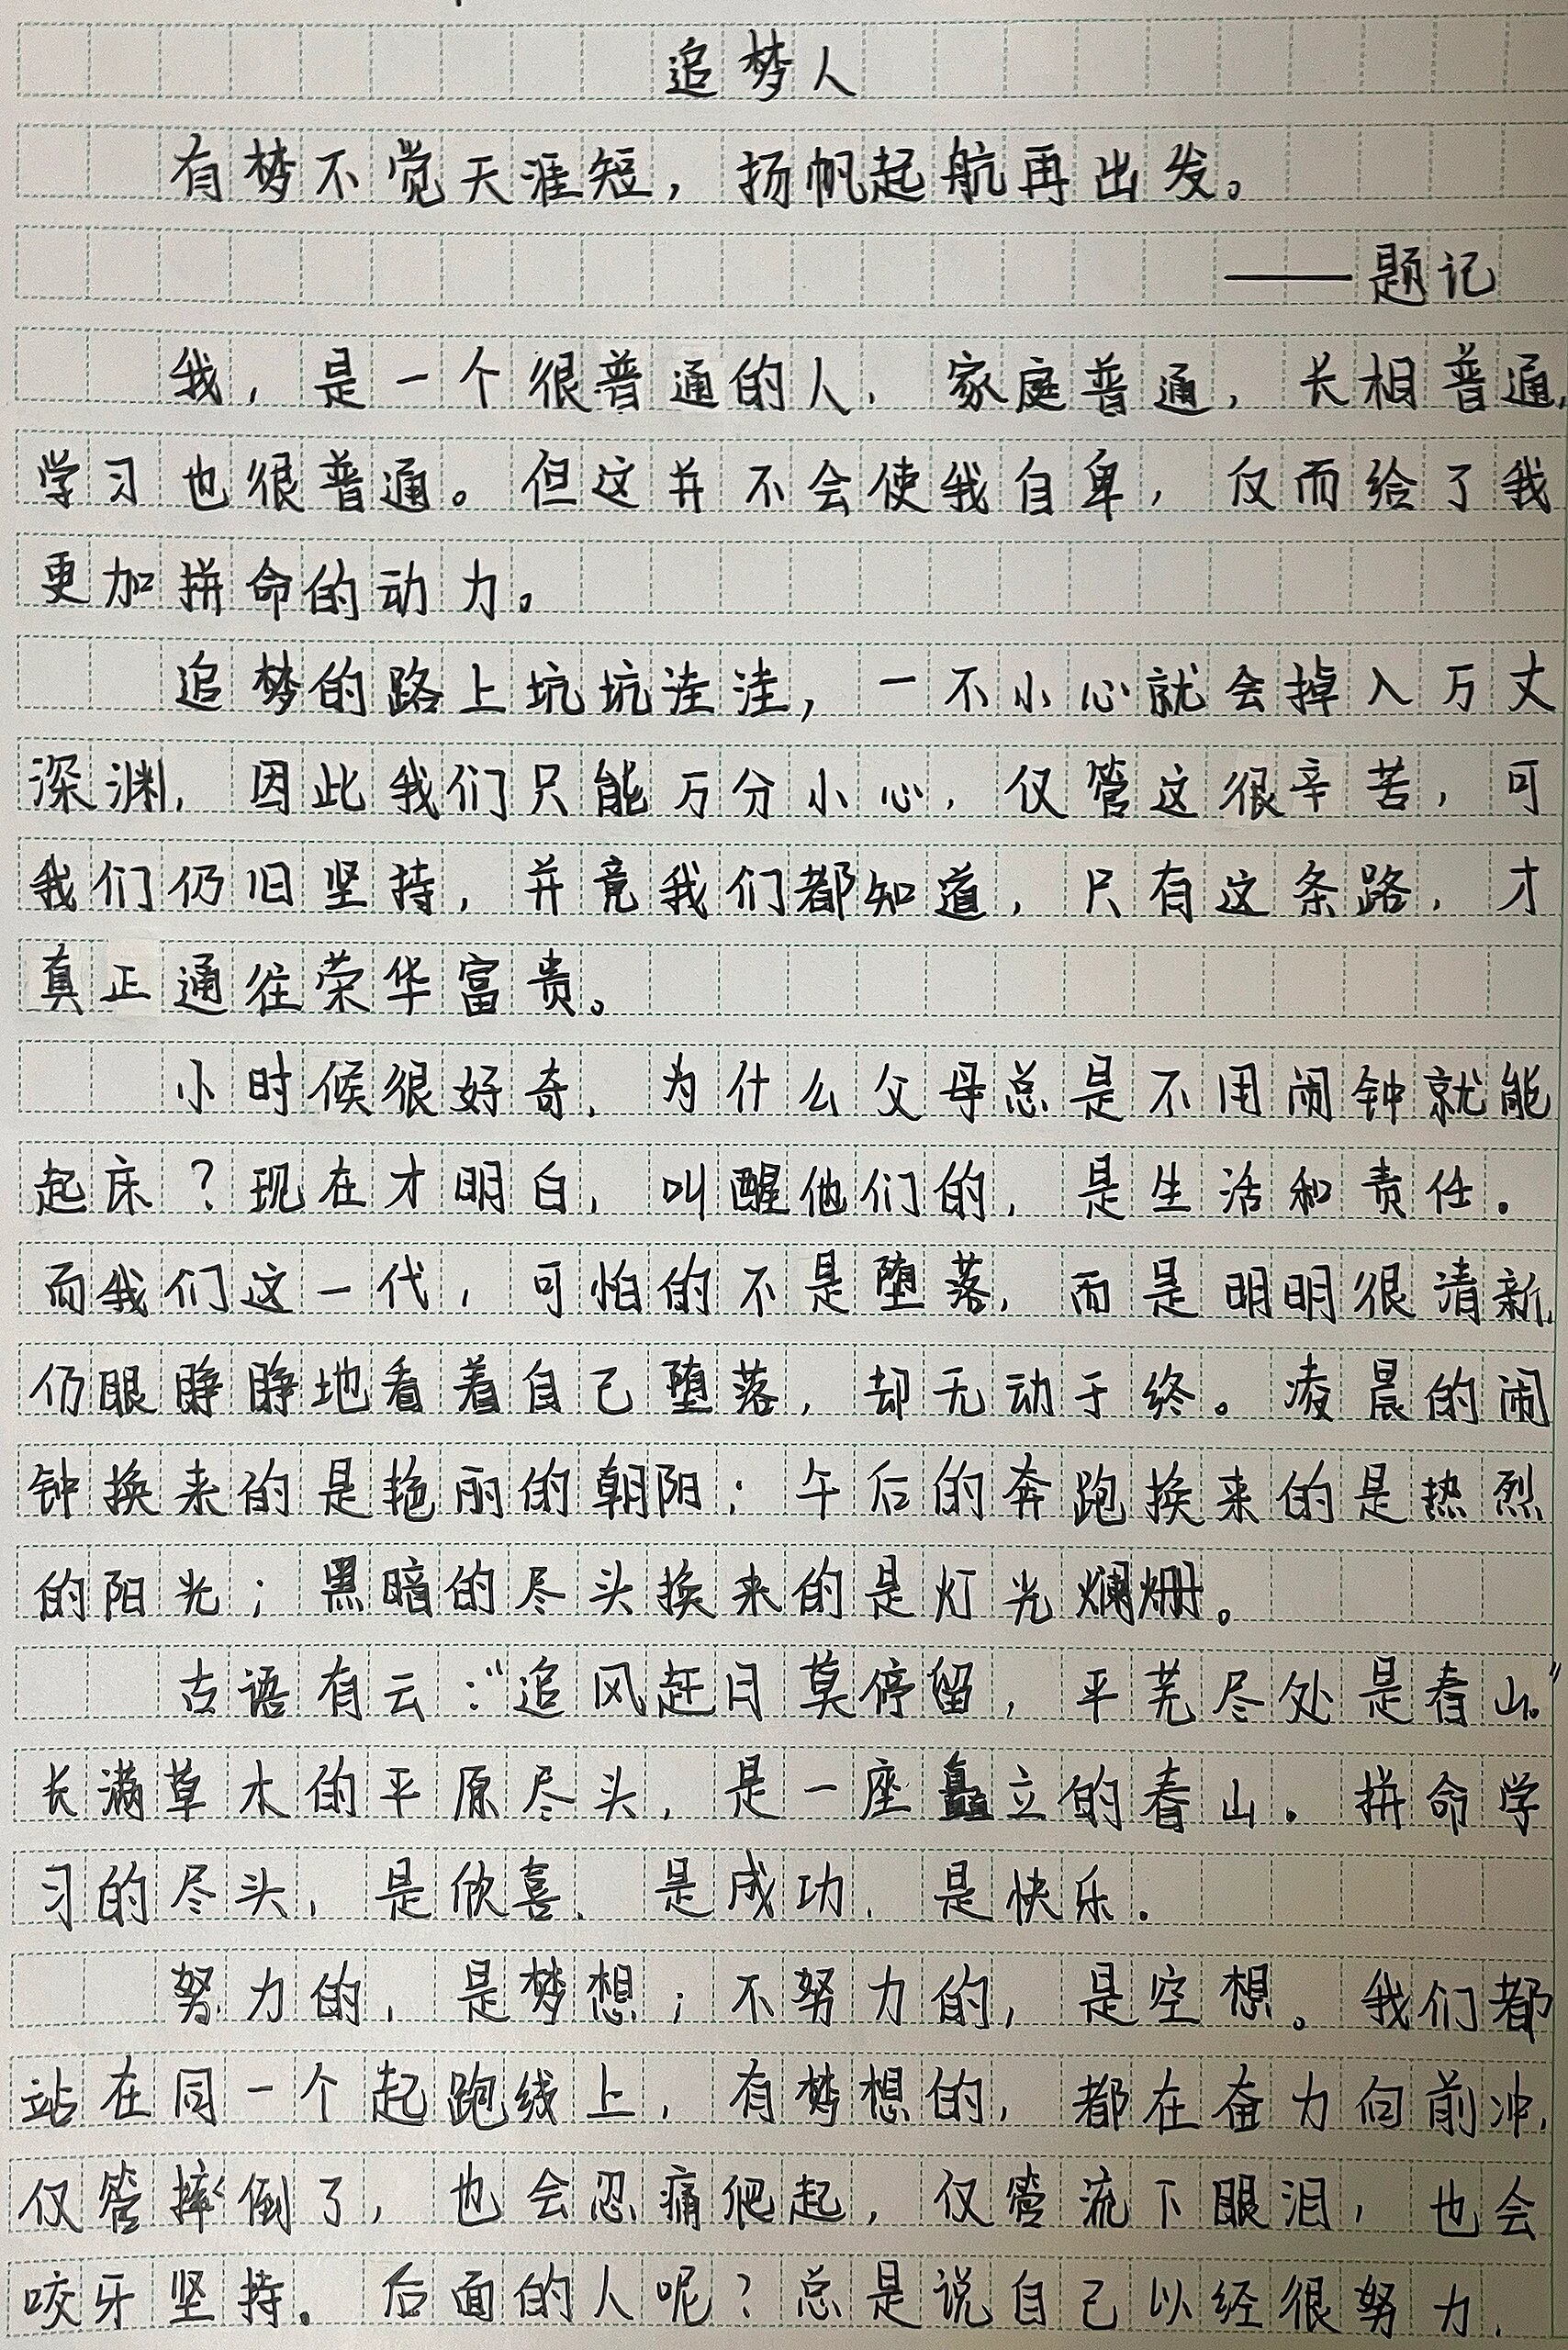 追梦人
有梦不觉天涯短，扬帆起航再出发。
——题记
我，是一个很普通的人，家庭普通，长相普通，
学习也很普通。但这并不会使我自卑，仅而给了我
更加拼命的动力。
追梦的路上坑坑洼洼，一不小心就会掉入万丈
深渊，因此我们只能万分小心，仅管这很辛苦，可
我们仍旧坚持，并竟我们都知道，只有这条路，才
真正通往荣华富贵。
小时候很好奇，为什么父母总是不用闹钟就能
起床？现在才明白，叫醒他们的，是生活和责任。
而我们这一代，可怕的不是堕落，而是明明很清新，
仍眼睁睁地看着自己堕落，却无动于终。凌晨的闹
钟换来的是艳丽的朝阳；午后的奔跑换来的是热烈
的阳光；黑暗的尽头换来的是灯光斓珊。
古语有云：“追风赶月莫停留，平芜尽处是春山。”
长满草木的平原尽头，是一座矗立的春山。拼命学
习的尽头，是欣喜、是成功、是快乐。
努力的，是梦想；不努力的，是空想。我们都
站在同一个起跑线上，有梦想的，都在奋力向前冲，
仅管摔倒了，也会忍痛爬起，仅管流下眼泪，也会
咬牙坚持。后面的人呢？总是说自己以经很努力，